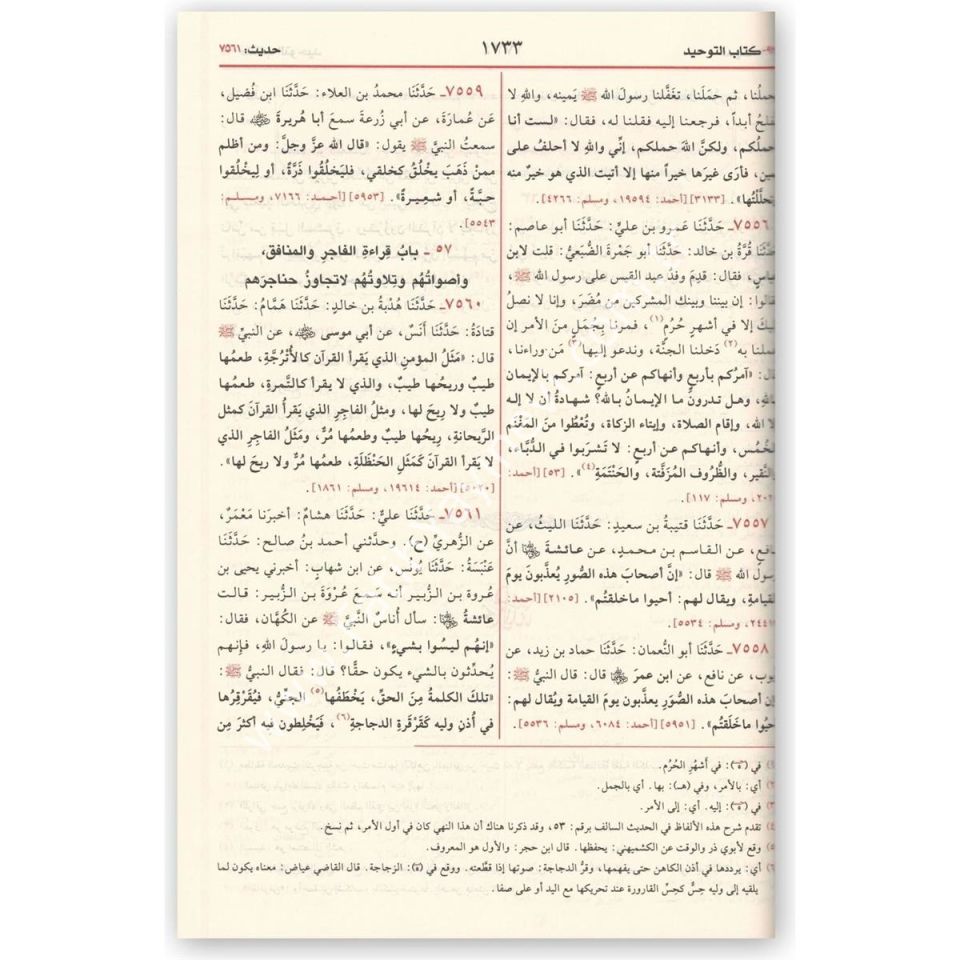 كتاب التوحيد
١٧٣٣
حديث: ٧٥٦١
حملْنا، ثم حمَلَنا، تغَفَّلنا رسولَ الله ﷺ يَمينه، والله لا
نفلحُ أبداً، فرجعنا إليه فقلنا له، فقال: «لست أنا
أحملُكم، ولكنَّ اللهَ حملكم، إنِّي والله لا أحلفُ على
يمين، فأرَى غيرَها خيراً منها إلا أتيت الذي هو خيرٌ منه
وتحلَّلْتُها». [٣١٣٣] [أحمد: ١٩٥٩٤، ومسلم: ٤٢٦٦].
٧٥٥٦ـ حَدَّثَنَا عَمرو بن عليٍّ: حَدَّثَنَا أبو عاصم:
حَدَّثَنا قُرَّةُ بن خالد: حَدَّثَنَا أبو جَمْرةَ الضُّبَعيُّ: قلت لابن
عباسٍ، فقال: قدِم وفدُ عبد القيس على رسول الله ﷺ،
فقالوا: إن بيننا وبينك المشركين من مُضَرَ، وإنا لا نصلُ
إليك إلا في أشهرٍ حُرُم(١)، فمرنا بجُمَلٍ منَ الأمر إن
عملنا به(٢) دَخلنا الجنَّة، وندعو إليها(٣) مَن وراءنا،
قال: «آمرُكم بأربع وأنهاكم عن أربع: آمركم بالإيمان
بالله، وهل تدرونَ ما الإيمانُ بالله؟ شهادةُ أن لا إله
إلا الله، وإقام الصلاة، وإيتاء الزكاة، وتُعْطُوا منَ المَغْنَم
الخُمُس، وأنهاكم عن أربعٍ: لا تَشرَبوا في الدُّبَّاء،
والنَّقير، والظُّروف المُزَفَّتة، والحَنْتَمَةِ(٤)». [٥٣] [أحمد:
٢٠٢٠، ومسلم: ١١٧].
٧٥٥٧ـ حَدَّثَنَا قتيبةُ بن سعيد: حَدَّثَنَا الليثُ، عن
نافع، عن القاسم بن محمد، عن عائشة ﵂ أنَّ
رسول الله ﷺ قال: «إنَّ أصحابَ هذه الصُّورِ يُعذَّبونَ يومَ
القيامةِ، ويقال لهم: أحيوا ماخلقتُم». [٢١٠٥] [أحمد:
ومسلم: ٥٥٣٤].
٧٥٥٨ـ حَدَّثَنَا أبو النُّعمان: حَدَّثَنَا حماد بن زيد، عن
أيوب، عن نافع، عن ابن عمرَ ﵄ قال: قال النبيُّ ﷺ:
«إن أصحابَ هذه الصُّوَر يعذَّبون يومَ القيامة ويُقال لهم:
أحيُوا ما خَلَقتُم». [٥٩٥١] [أحمد: ٦٠٨٤، ومسلم: ٥٥٣٦].
٧٥٥٩ـ حَدَّثَنَا محمدُ بن العلاء: حَدَّثَنَا ابن فُضيل،
عَن عُمارَةَ، عن أبي زُرعةَ سمعَ أبا هُريرةَ ﵁ قال:
سمعتُ النبيَّ ﷺ يقول: «قال الله عزَّ وجلَّ: ومن أظلم
ممنْ ذَهَبَ يخْلُقُ كخلقي، فليَخلُقُوا ذَرَّةً، أو لِيخْلُقوا
حبَّةً، أو شعِيرةً». [٥٩٥٣] [أحمد: ٧١٦٦، ومسلم:
٥٥٤٣]
٥٧ - بابُ قِراءةِ الفاجرِ والمنافقِ،
وأصواتُهُم وتِلاوتُهُم لاتجاوزُ حناجرَهم
٧٥٦٠ـ حَدَّثَنَا هُدْبةُ بن خالدٍ: حَدَّثَنَا هَمَّامُ: حَدَّثَنَا
قتادَةُ: حَدَّثَنَا أَنَسٌ، عن أبي موسى ﵁، عن النبيِّ ﷺ
قال: «مَثَلُ المؤمنِ الذي يَقرأ القرآن كالأُتْرُجَّةِ، طعمُها
طيبٌ وريحُها طيبٌ، والذي لا يقرأ كالتَّمرةِ، طعمُها
طيبٌ ولا ريحَ لها، ومثلُ الفاجِرِ الذي يَقرأُ القرآنَ كمثل
الرَّيحانةِ، رِيحُها طيبٌ وطعمُها مُرٌّ، ومَثَلُ الفاجرِ الذي
لا يَقرأ القرآنَ كَمَثَلِ الحَنْظَلَةِ، طعمُها مُرٌّ ولا ريحَ لها».
[٥٠٢٠] [أحمد: ١٩٦١٤، ومسلم: ١٨٦١].
٧٥٦١ـ حَدَّثَنَا عليٌّ: حَدَّثَنَا هشامٌ: أخبرنا مَعْمَرٌ،
عن الزُّهريِّ (ح). وحدَّثني أحمد بن صالح: حَدَّثَنَا
عَنْبَسَةُ: حَدَّثَنَا يُونُس، عن ابن شهابٍ: أخبرني يحيى بن
عُروة بن الزُّبير أنه سَمِعَ عُرْوَةَ بن الزُّبير: قالت
عائشةُ ﵂: سأل أُناسٌ النَّبيَّ ﷺ عن الكُهَّان، فقال:
«إنهُم ليسُوا بشيءٍ»، فقالوا: يا رسولَ اللهِ، فإنهم
يُحدِّثون بالشيء يكون حقًّا؟ قال: فقال النبيُّ ﷺ:
«تلكَ الكلمةُ مِنَ الحقِّ، يَخْطَفُها(٥) الجنِّيُّ، فيُقَرْقِرُها
في أُذنِ وليه كَقَرْقَرةِ الدجاجةِ(٦)، فَيَخْلِطون فيه أكثرَ مِن
(١) في (ﻫ): في أَشهُرِ الحُرُم.
(٢) أي: بالأمر، وفي (هـ): بها. أي بالجمل.
(٣) في (ﻫ): إليه. أي: إلى الأمر.
(٤) تقدم شرح هذه الألفاظ في الحديث السالف برقم: ٥٣، وقد ذكرنا هناك أن هذا النهي كان في أول الأمر، ثم نسخ.
(٥) وقع لأبوي ذر والوقت عن الكشميهني: يحفظها. قال ابن حجر: والأول هو المعروف.
(٦) أي: يرددها في أذن الكاهن حتى يفهمها، وقرُّ الدجاجة: صوتها إذا قطَّعته. ووقع في (ﻫ): الزجاجة. قال القاضي عياض: معناه يكون لما
يلقيه إلى وليه حِسٌّ كحِسِّ القارورة عند تحريكها مع اليد أو على صفا.